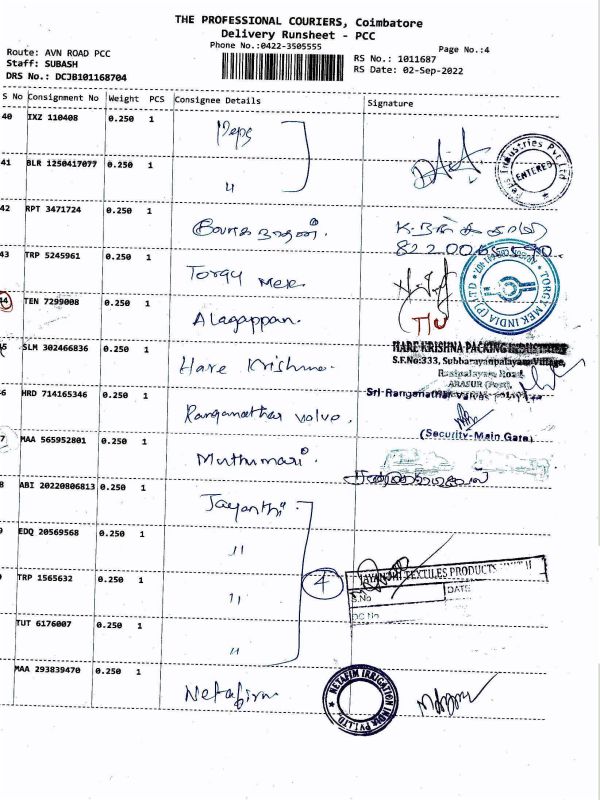 THE PROFESSIONAL COURIERS, Coimbatore
Delivery Runsheet - PCC
Phone No.:0422-3505555
Page No.:4
Route: AVN ROAD PCC
Staff: SUBASH
DRS No.: DCJB101168704
RS No.: 1011687
RS Date: 02-Sep-2022
S No Consignment No Weight PCS Consignee Details Signature
40 IXZ 110408 0.250 1 Peps
Peps Industries Pvt Ltd
ENTERED
41 BLR 1250417077 0.250 1 "
42 RPT 3471724 0.250 1
43 TRP 5245961 0.250 1 Torgy Mek
TORGY MEK INDIA (P) LTD
44 TEN 7299008 0.250 1 Alagappan.
SLM 302466836 0.250 1 Hare Krishna.
HARE KRISHNA PACKING INDUSTRIES
S.F.No:333, Subbarayanpalayam Village,
Rasipalayam Road,
ARASUR (Post),
HRD 714165346 0.250 1 Ranganathar valve.
Sri Ranganathar Valves
(Security-Main Gate)
MAA 565952801 0.250 1 Muthumari.
ABI 20220806813 0.250 1 Jayanthi
EDQ 20569568 0.250 1 "
TRP 1565632 0.250 1 "
4
JAYANTHI TEXTILES PRODUCTS
S.No
DATE
DC No
TUT 6176007 0.250 1 "
MAA 293839470 0.250 1 Netafim
NETAFIM IRRIGATION INDIA PVT LTD